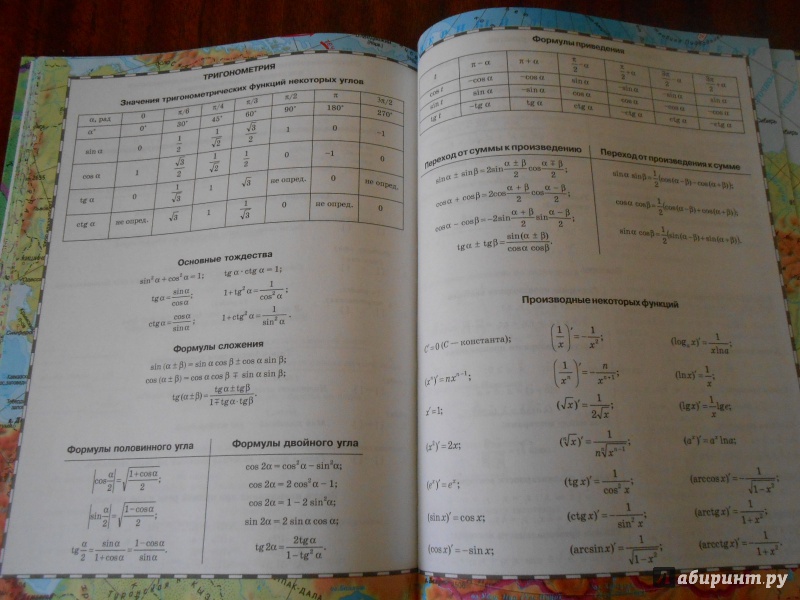 ТРИГОНОМЕТРИЯ
Значения тригонометрических функций некоторых углов
α, рад 0 π/6 π/4 π/3 π/2 π 3π/2
α° 0° 30° 45° 60° 90° 180° 270°
sin α 0 1/2 1/√2 √3/2 1 0 −1
cos α 1 √3/2 1/√2 1/2 0 −1 0
tg α 0 1/√3 1 √3 не опред. 0 не опред.
ctg α не опред. √3 1 1/√3 0 не опред. 0
Основные тождества
sin² α + cos² α = 1; tg α · ctg α = 1;
tg α = sin α/cos α; 1 + tg² α = 1/cos² α;
ctg α = cos α/sin α; 1 + ctg² α = 1/sin² α.
Формулы сложения
sin (α ± β) = sin α cos β ± cos α sin β;
cos (α ± β) = cos α cos β ∓ sin α sin β;
tg (α ± β) = (tg α ± tg β)/(1 ∓ tg α · tg β).
Формулы половинного угла
|cos α/2| = √((1 + cos α)/2);
|sin α/2| = √((1 − cos α)/2);
tg α/2 = sin α/(1 + cos α) = (1 − cos α)/sin α.
Формулы двойного угла
cos 2α = cos² α − sin² α;
cos 2α = 2 cos² α − 1;
cos 2α = 1 − 2 sin² α;
sin 2α = 2 sin α cos α;
tg 2α = 2tg α/(1 − tg² α).
Формулы приведения
t π − α π + α π/2 − α π/2 + α 3π/2 − α 3π/2 + α
cos t −cos α −cos α sin α −sin α −sin α sin α
sin t sin α −sin α cos α cos α −cos α −cos α
tg t −tg α tg α ctg α −ctg α ctg α −ctg α
Переход от суммы к произведению
sin α ± sin β = 2sin (α ± β)/2 cos (α ∓ β)/2;
cos α + cos β = 2cos (α + β)/2 cos (α − β)/2;
cos α − cos β = −2sin (α + β)/2 sin (α − β)/2;
tg α ± tg β = sin(α ± β)/(cos α cos β).
Переход от произведения к сумме
sin α sin β = 1/2 (cos(α − β) − cos(α + β));
cos α cos β = 1/2 (cos(α − β) + cos(α + β));
sin α cos β = 1/2 (sin(α − β) + sin(α + β)).
Производные некоторых функций
C′ = 0 (C — константа); (1/x)′ = −1/x²; (logₐ x)′ = 1/(x ln a);
(xⁿ)′ = nxⁿ⁻¹; (1/xⁿ)′ = −n/xⁿ⁺¹; (ln x)′ = 1/x;
x′ = 1; (√x)′ = 1/(2√x); (lg x)′ = 1/x lg e;
(x²)′ = 2x; (ⁿ√x)′ = 1/(n ⁿ√xⁿ⁻¹); (aˣ)′ = aˣ ln a;
(eˣ)′ = eˣ; (tg x)′ = 1/cos² x; (arccos x)′ = −1/√(1 − x²);
(sin x)′ = cos x; (ctg x)′ = −1/sin² x; (arctg x)′ = 1/(1 + x²);
(cos x)′ = −sin x; (arcsin x)′ = 1/√(1 − x²); (arcctg x)′ = −1/(1 + x²).
Лабиринт.ру